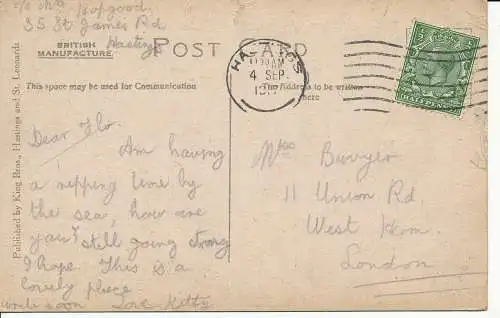 c/o Mrs Hopgood
35 St James Rd
Hastings
BRITISH
MANUFACTURE
POST CARD
This space may be used for Communication
The Address to be written
here
HASTINGS
11 30 AM
4 SEP
HALFPENNY
Published by King Bros., Hastings and St. Leonards
Dear Flo.
Am having
a ripping time by
the sea, how are
you? still going strong
I hope. This is a
lovely place
write soon Love Kitty
Mrs
11 Union Rd
West Ham
London